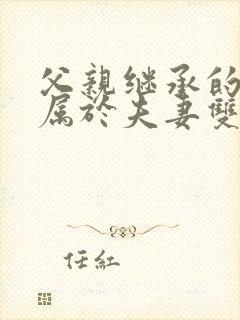 父親继承的
属於夫妻雙
任紅